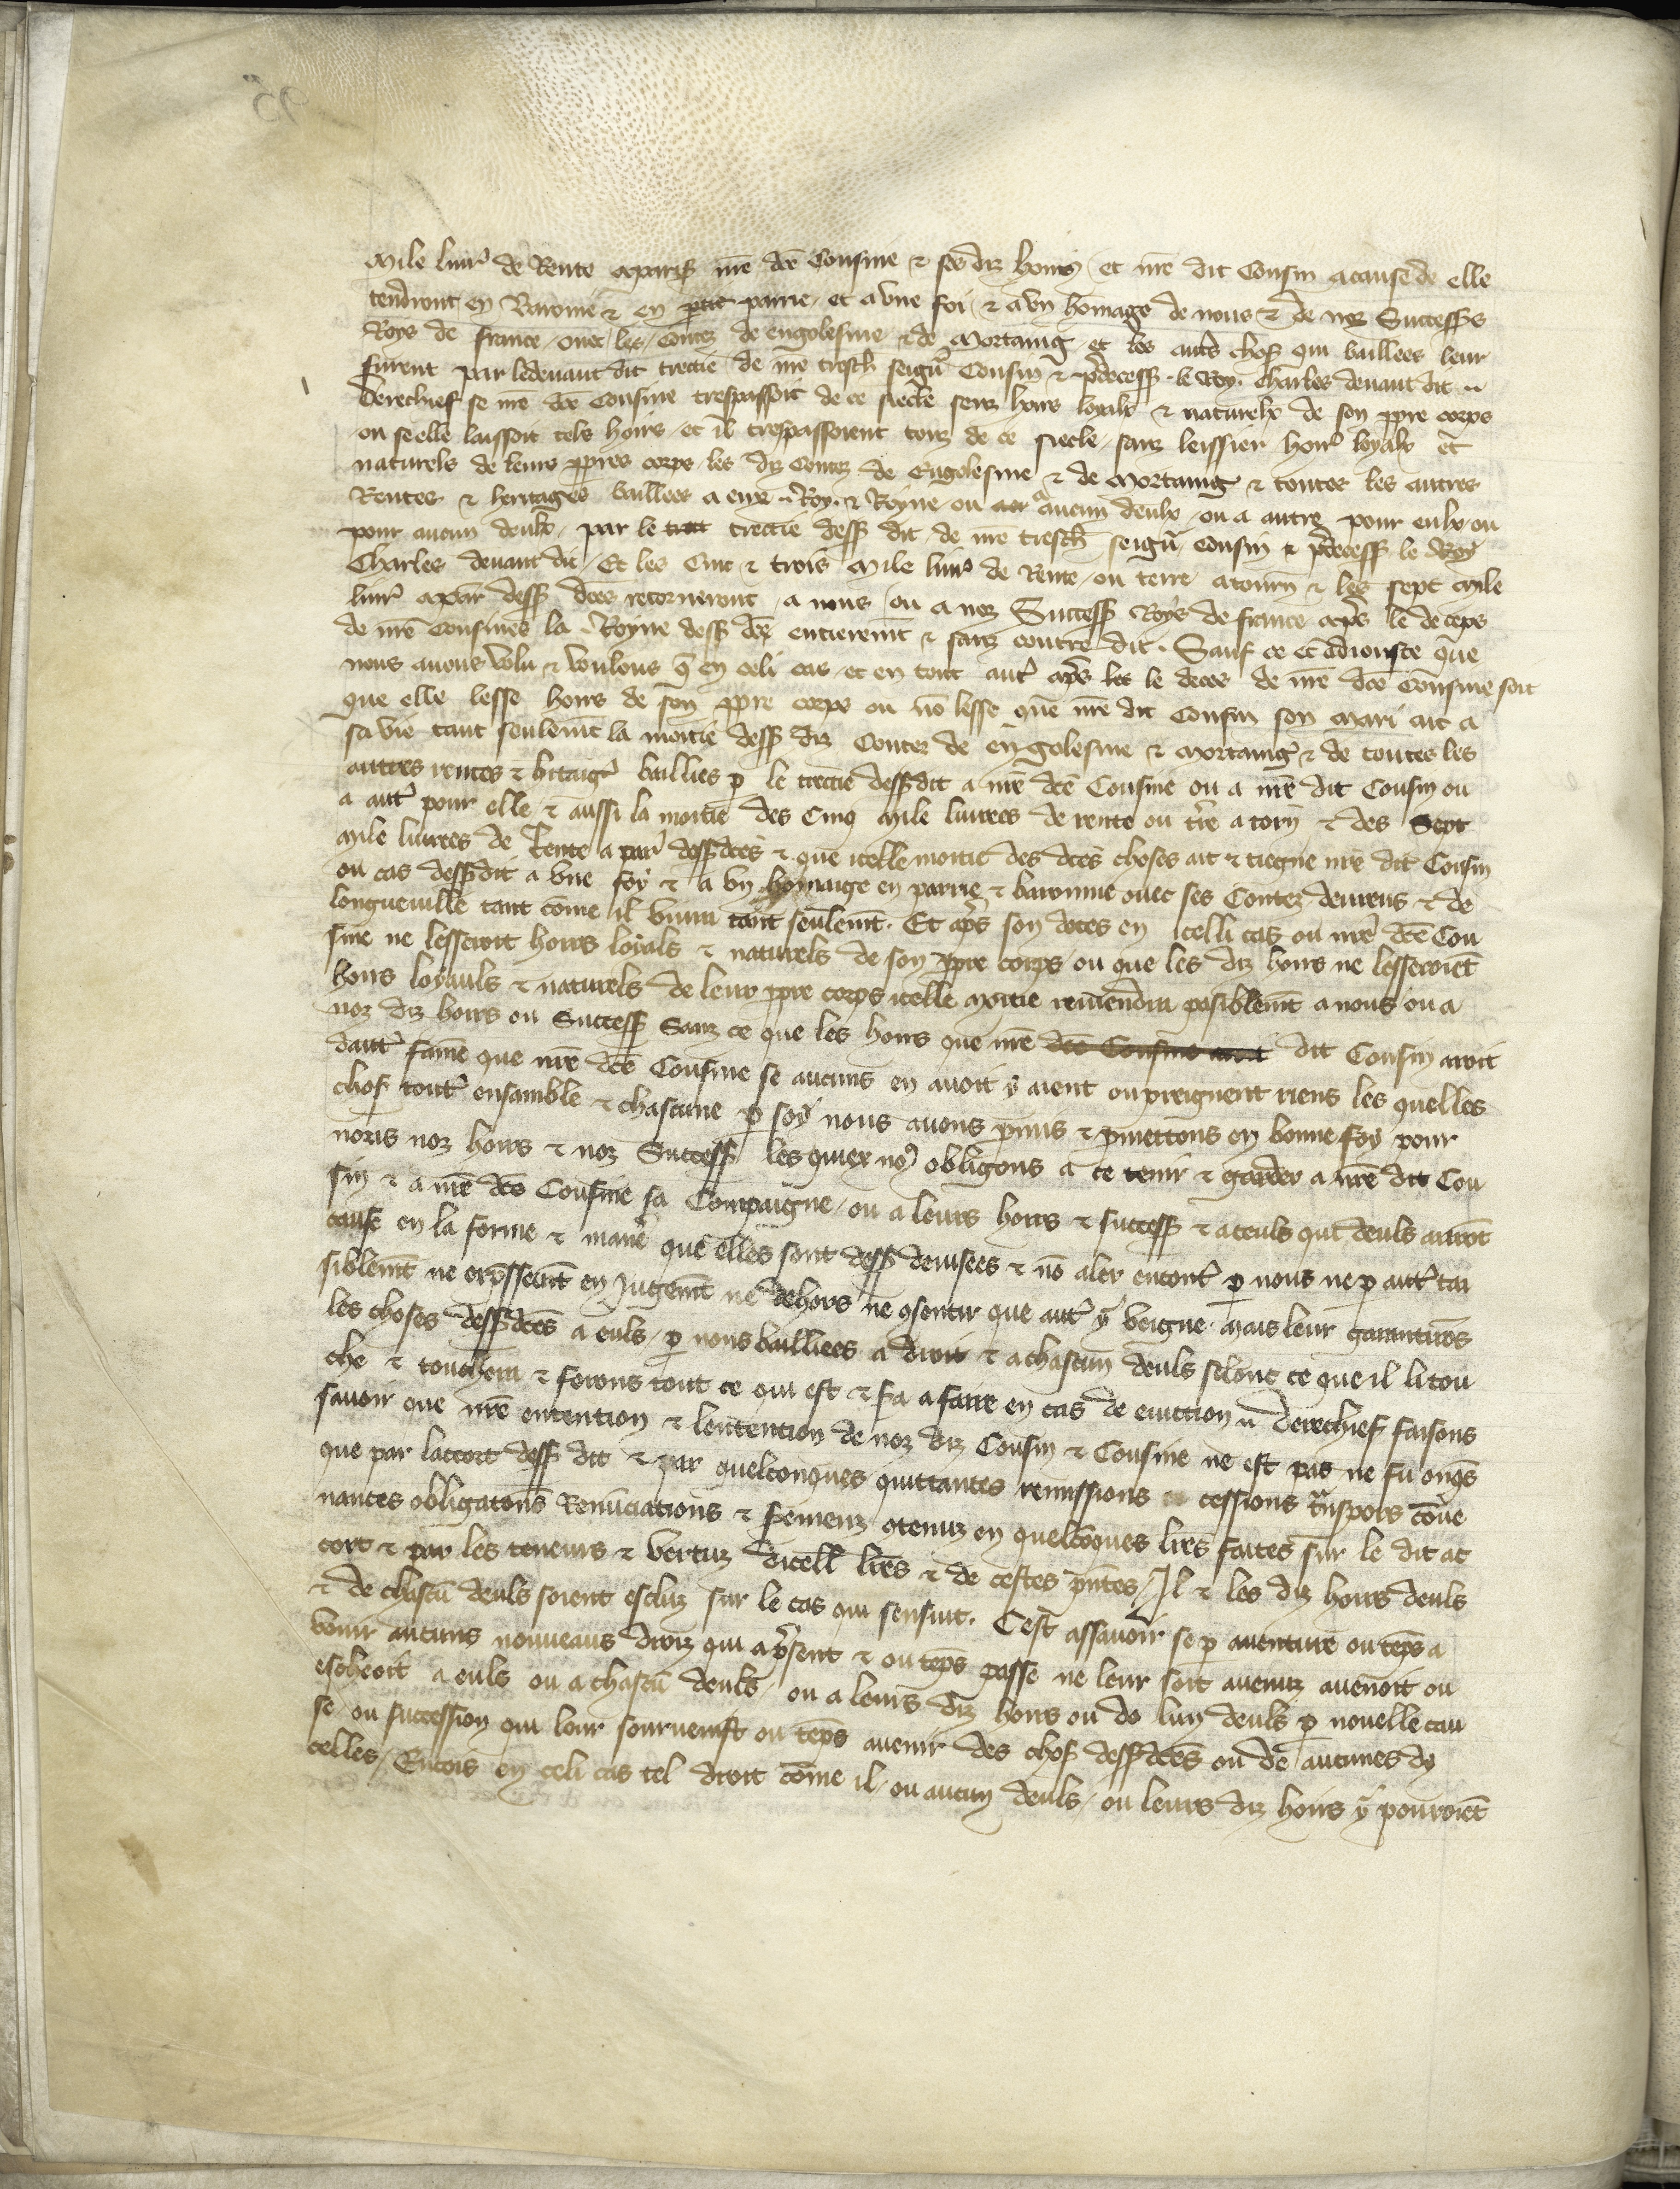 Mile livr' de Rente a Paris nre̅ dce̅ Cousine ⁊ ses diz hoirs / et nre̅ dit Cousin a cause de elle
tendront en Baronie ⁊ en parrie / et a vne foi / ⁊ a vn ho̅mage de nous ⁊ de noz Success̅s
Roys de France / ouec / les / Contez de Engolesme ⁊ de Mortaing / et les autr̅s chos̅ qui baillees leur
furent par le deuant dit traitie de nre̅ tresch̅ seign̅r Cousin ⁊ p̅decess̅ . le Roy . Charles deuant dit ..
Derechief se nre̅ dce̅ Cousine trespassoit de ce siecle senz hoirs loyalx ⁊ naturelx de son pp̅re corps
ou se elle laissoit tels hoirs / et il trespassoient touz de ce siecle / sanz leissier hoir' loyalx et
naturels de leurs pp̅res corps / les diz Contez de Engolesme ⁊ de Mortaing ⁊ toutes les autres
Rentes ⁊ heritages baillees a eux .. Roy . ⁊ Royne / ou a aucun deulx / ou a autre pour eulx / ou
pour aucun deulx / par le traitie dess̅ dit / de nre̅ tresch̅ seign̅r Cousin ⁊ p̅decess̅ le Roy
Charles deuant dit / Et les Cinc ⁊ trois Mile livr' de Rente / ou terre a tourn̅ ⁊ les sept Mile
livr' a par' dess̅ dce̅s retorneront / a nous / ou a noz Success̅ Roys de France ap̅s le deceps
de nre̅ Cousine la .. Royne dess̅ dce̅ entierem̅t ⁊ sanz contredit . Sauf ce et adiouste que
nous auons volu ⁊ voulons q̅ en celi cas / et en tout aut' ap̅s le deces de nre̅ dce̅ Cousine soit
que elle lesse hoirs de son pp̅re corps ou no̅ lesse que nre̅ dit Cousin son mari ait a
sa vie tant seulem̅t la moitie dess̅ diz Contez de Engolesme ⁊ Mortaing ⁊ de toutes les
autres rentes ⁊ h̅itaig' baillies p̲ le traitie dess̅ dit a nre̅ dce̅ Cousine ou a nre̅ dit Cousin ou
a aut' pour elle ⁊ aussi la moitie des Cinq Mile livrees de rente ou t̅re a torn̅ ⁊ des Sept
Mile livrees de Rente a par' dess̅ dce̅s ⁊ que icelle moitie des dce̅s choses ait ⁊ tiegne nre̅ dit Cousin
ou cas dess̅ dit a vne foy ⁊ a vn homaige en parrie ⁊ baronnie ouec ses Contez deureus ⁊ de
Longueuille tant co̅me il viura tant seulem̅t . Et ap̅s son deces en icelli cas ou nre̅ dce̅ Cou
sine ne lesseroit hoirs loyals ⁊ naturels de son pp̅re corps / ou que les diz hoirs ne lesseroie̅t
hoirs loyauls ⁊ naturels de leur pp̅re corps icelle moitie reuiendra pasiblem̅t a nous ou a
noz diz hoirs ou Success̅ Sanz ce que les hoirs que nre̅ dce̅ Cousine auoit dit Cousin auoit
daut' fame que nre̅ dce̅ Cousine se aucuns en auoit y aient ou preignent riens les quelles
chos̅ tout' ensamble ⁊ chascune p̲ soy nous auons p̅mis ⁊ p̅mettons en bonne foy pour
nous noz hoirs ⁊ noz Success̅ les quiex no9 obligons a ce tenir ⁊ garder a nre̅ dit Cou
sin ⁊ a nre̅ dce̅ Cousine sa Compaigne / ou a leurs hoirs ⁊ success̅ ⁊ a ceuls qui deuls auro̅t
cause en la forme ⁊ manie̅ que elles sont dess̅ deuisees ⁊ no̅ aler encont' p̲ nous ne p̲ aut' tai
siblem̅t ne exp̅ssem̅t en Jugem̅t ne dehors ne 9sentir que aut' y veigne . Mais leur garantiro̅s
les choses dess̅ dce̅s a euls / p̲ nous bailliees a droit ⁊ a chascun deuls selonc ce que il li tou
che ⁊ touchera ⁊ ferons tout ce qui est ⁊ sa a faire en cas de euiction .. Derechief faisons
sauoir que nre̅ entention ⁊ lentention de noz diz Cousin ⁊ Cousine ne est pas ne fu onq̅s
que par laccort dess̅ dit ⁊ par quelconques quittances remissions cessions t̅nspors co̅ue
nances obligaton̅s Renu̅ciations ⁊ s̅emenz 9tenuz en quelco̅ques lre̅s faites sur le dit ac
cort ⁊ par les teneurs ⁊ vertuz dicell̅ lre̅s ⁊ de cestes p̅ntes / Il ⁊ les diz hoirs deuls
⁊ de chascu̅ deuls soient escluz sur le cas qui sensuit . Cest assauoir se p̲ auenture ou te̅ps a
venir aucuns nouueaus droiz qui a p̅sent ⁊ ou te̅ps passe ne leur soit auenuz auenoit ou
escheoit a euls ou a chascu̅ deuls / ou a leurs diz hoirs ou de lun deuls p̲ nouelle cau
se / ou succession qui leur souruenist ou te̅ps auenir des chos̅ dess̅ dce̅s ou de aucunes di
celles / Encois en celi cas tel droit co̅me il / ou aucun deuls / ou leurs diz hoirs y pouroie̅t